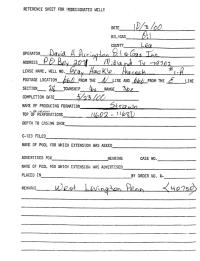 REFERENCE SHEET FOR UNDESIGNATED WELL?
DATE 10/3/00
OIL/GAS Oil
COUNTY Lea
OPERATOR David H Arrington Oil & Gas Inc
ADDRESS P.O. Box 2071 Midland TX 79702
LEASE NAME, WELL NO. Gray Hackle Peacock #1-A
FOOTAGE LOCATION 660 FROM THE N LINE AND 660 FROM THE E LINE
SECTION 26 TOWNSHIP RANGE
COMPLETION DATE 5/23/00
NAME OF PRODUCING FORMATION Strawn
TOP OF PERFORATIONS 11602 - 11680
DEPTH TO CASING SHOE
C-123 FILED
NAME OF POOL FOR WHICH EXTENSION WAS ASKED
ADVERTISED FOR HEARING CASE NO.
NAME OF POOL FOR WHICH EXTENSION WAS ADVERTISED
PLACED IN BY ORDER NO. R-
REMARKS West Lovington Penn (40750)